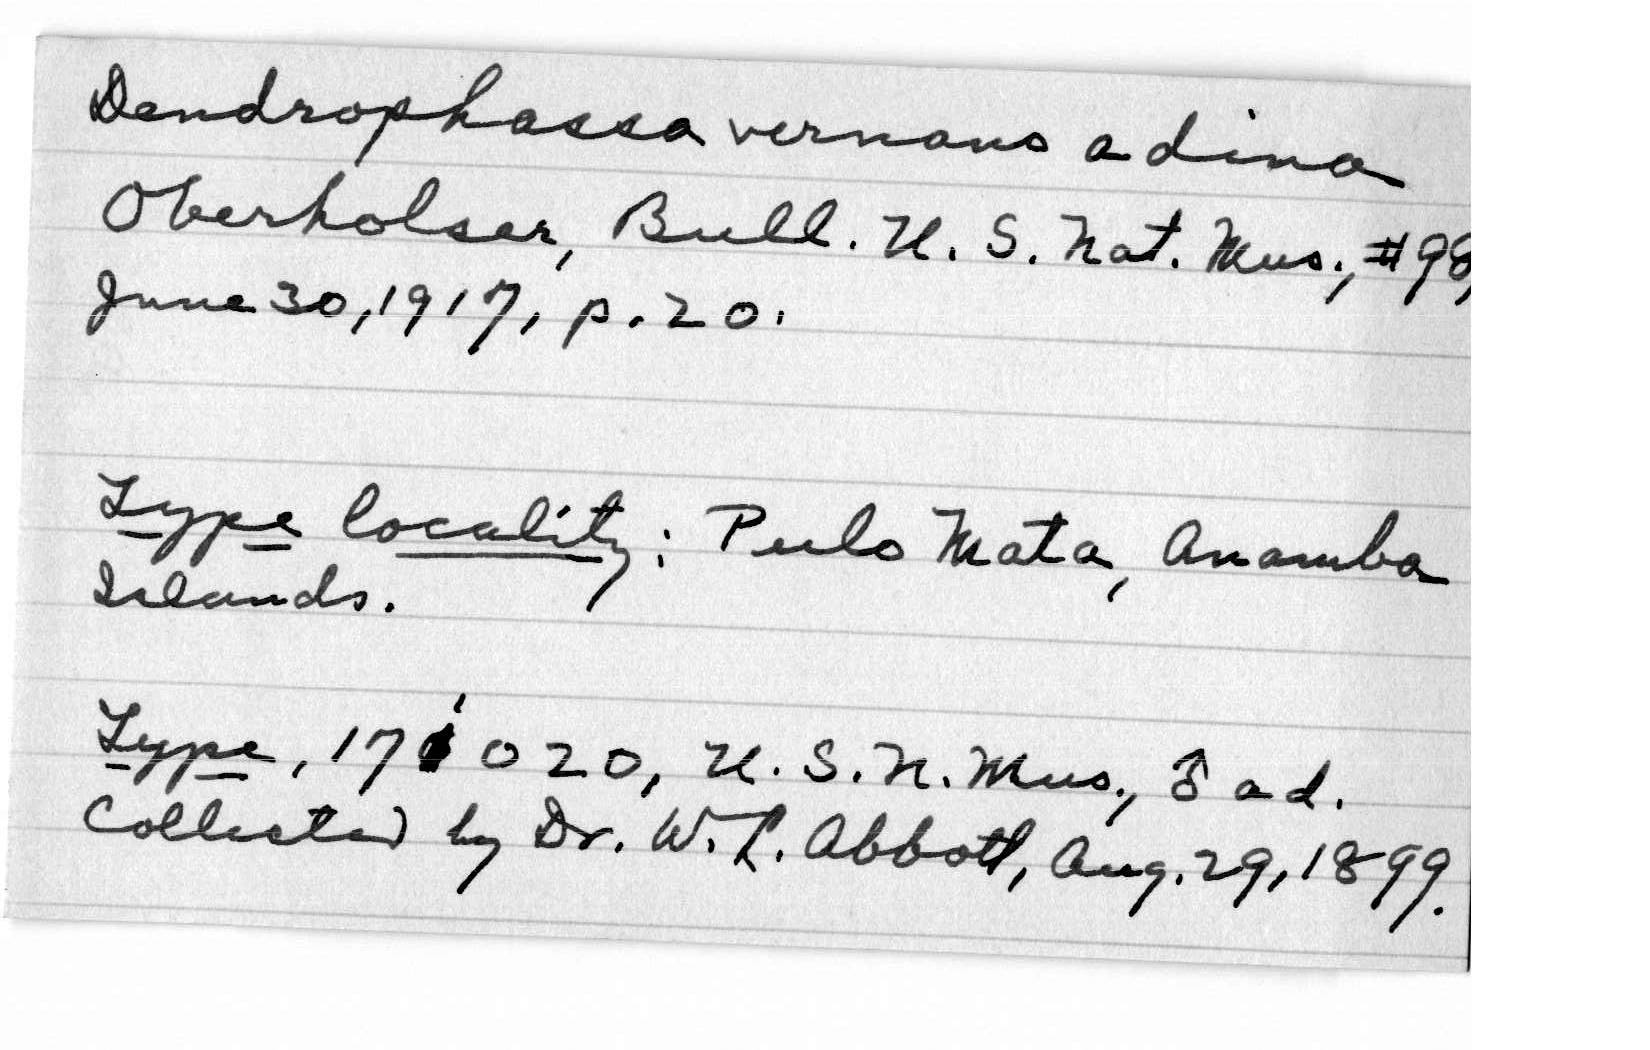 Dendrophassa vernans adina
Oberholser, Bull. U. S. Nat. Mus., #98,
June 30, 1917, p. 20.
Type locality: Pulo Mata, Anamba
Islands.
Type, 171020, U. S. N. Mus., ♂ ad.
Collected by Dr. W. L. Abbott, Aug. 29, 1899.